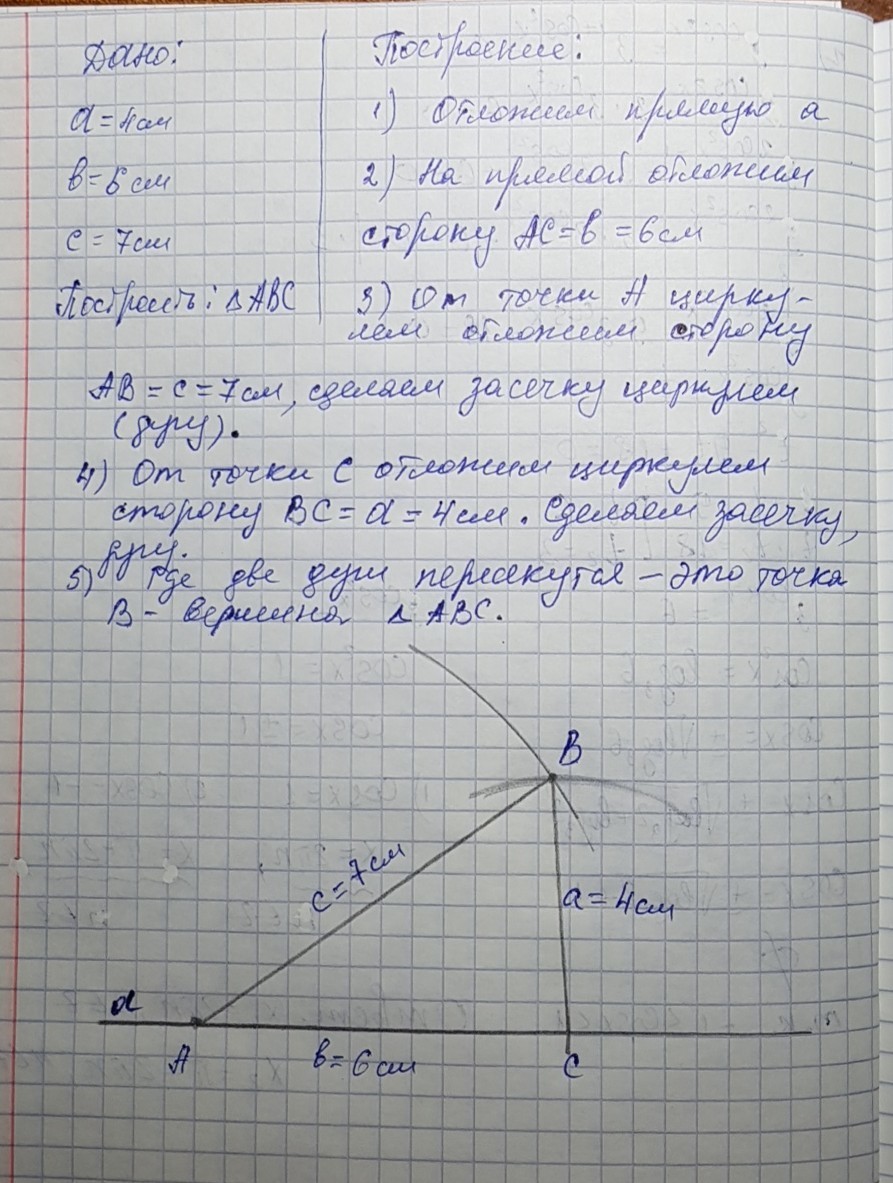 Дано:
a = 4 см
в = 6 см
c = 7 см
Построить: △ABC
Построение:
1) Отложим прямую a
2) На прямой отложим
сторону AC = в = 6 см
3) От точки A цирку-
лем отложим сторону
AB = c = 7 см, сделаем засечку циркулем
(дугу).
4) От точки C отложим циркулем
сторону BC = a = 4 см. Сделаем засечку,
дугу.
5) Где две дуги пересекутся – это точка
B – вершина △ ABC.
B
c = 7 см
a = 4 см
a
A
в = 6 см
C